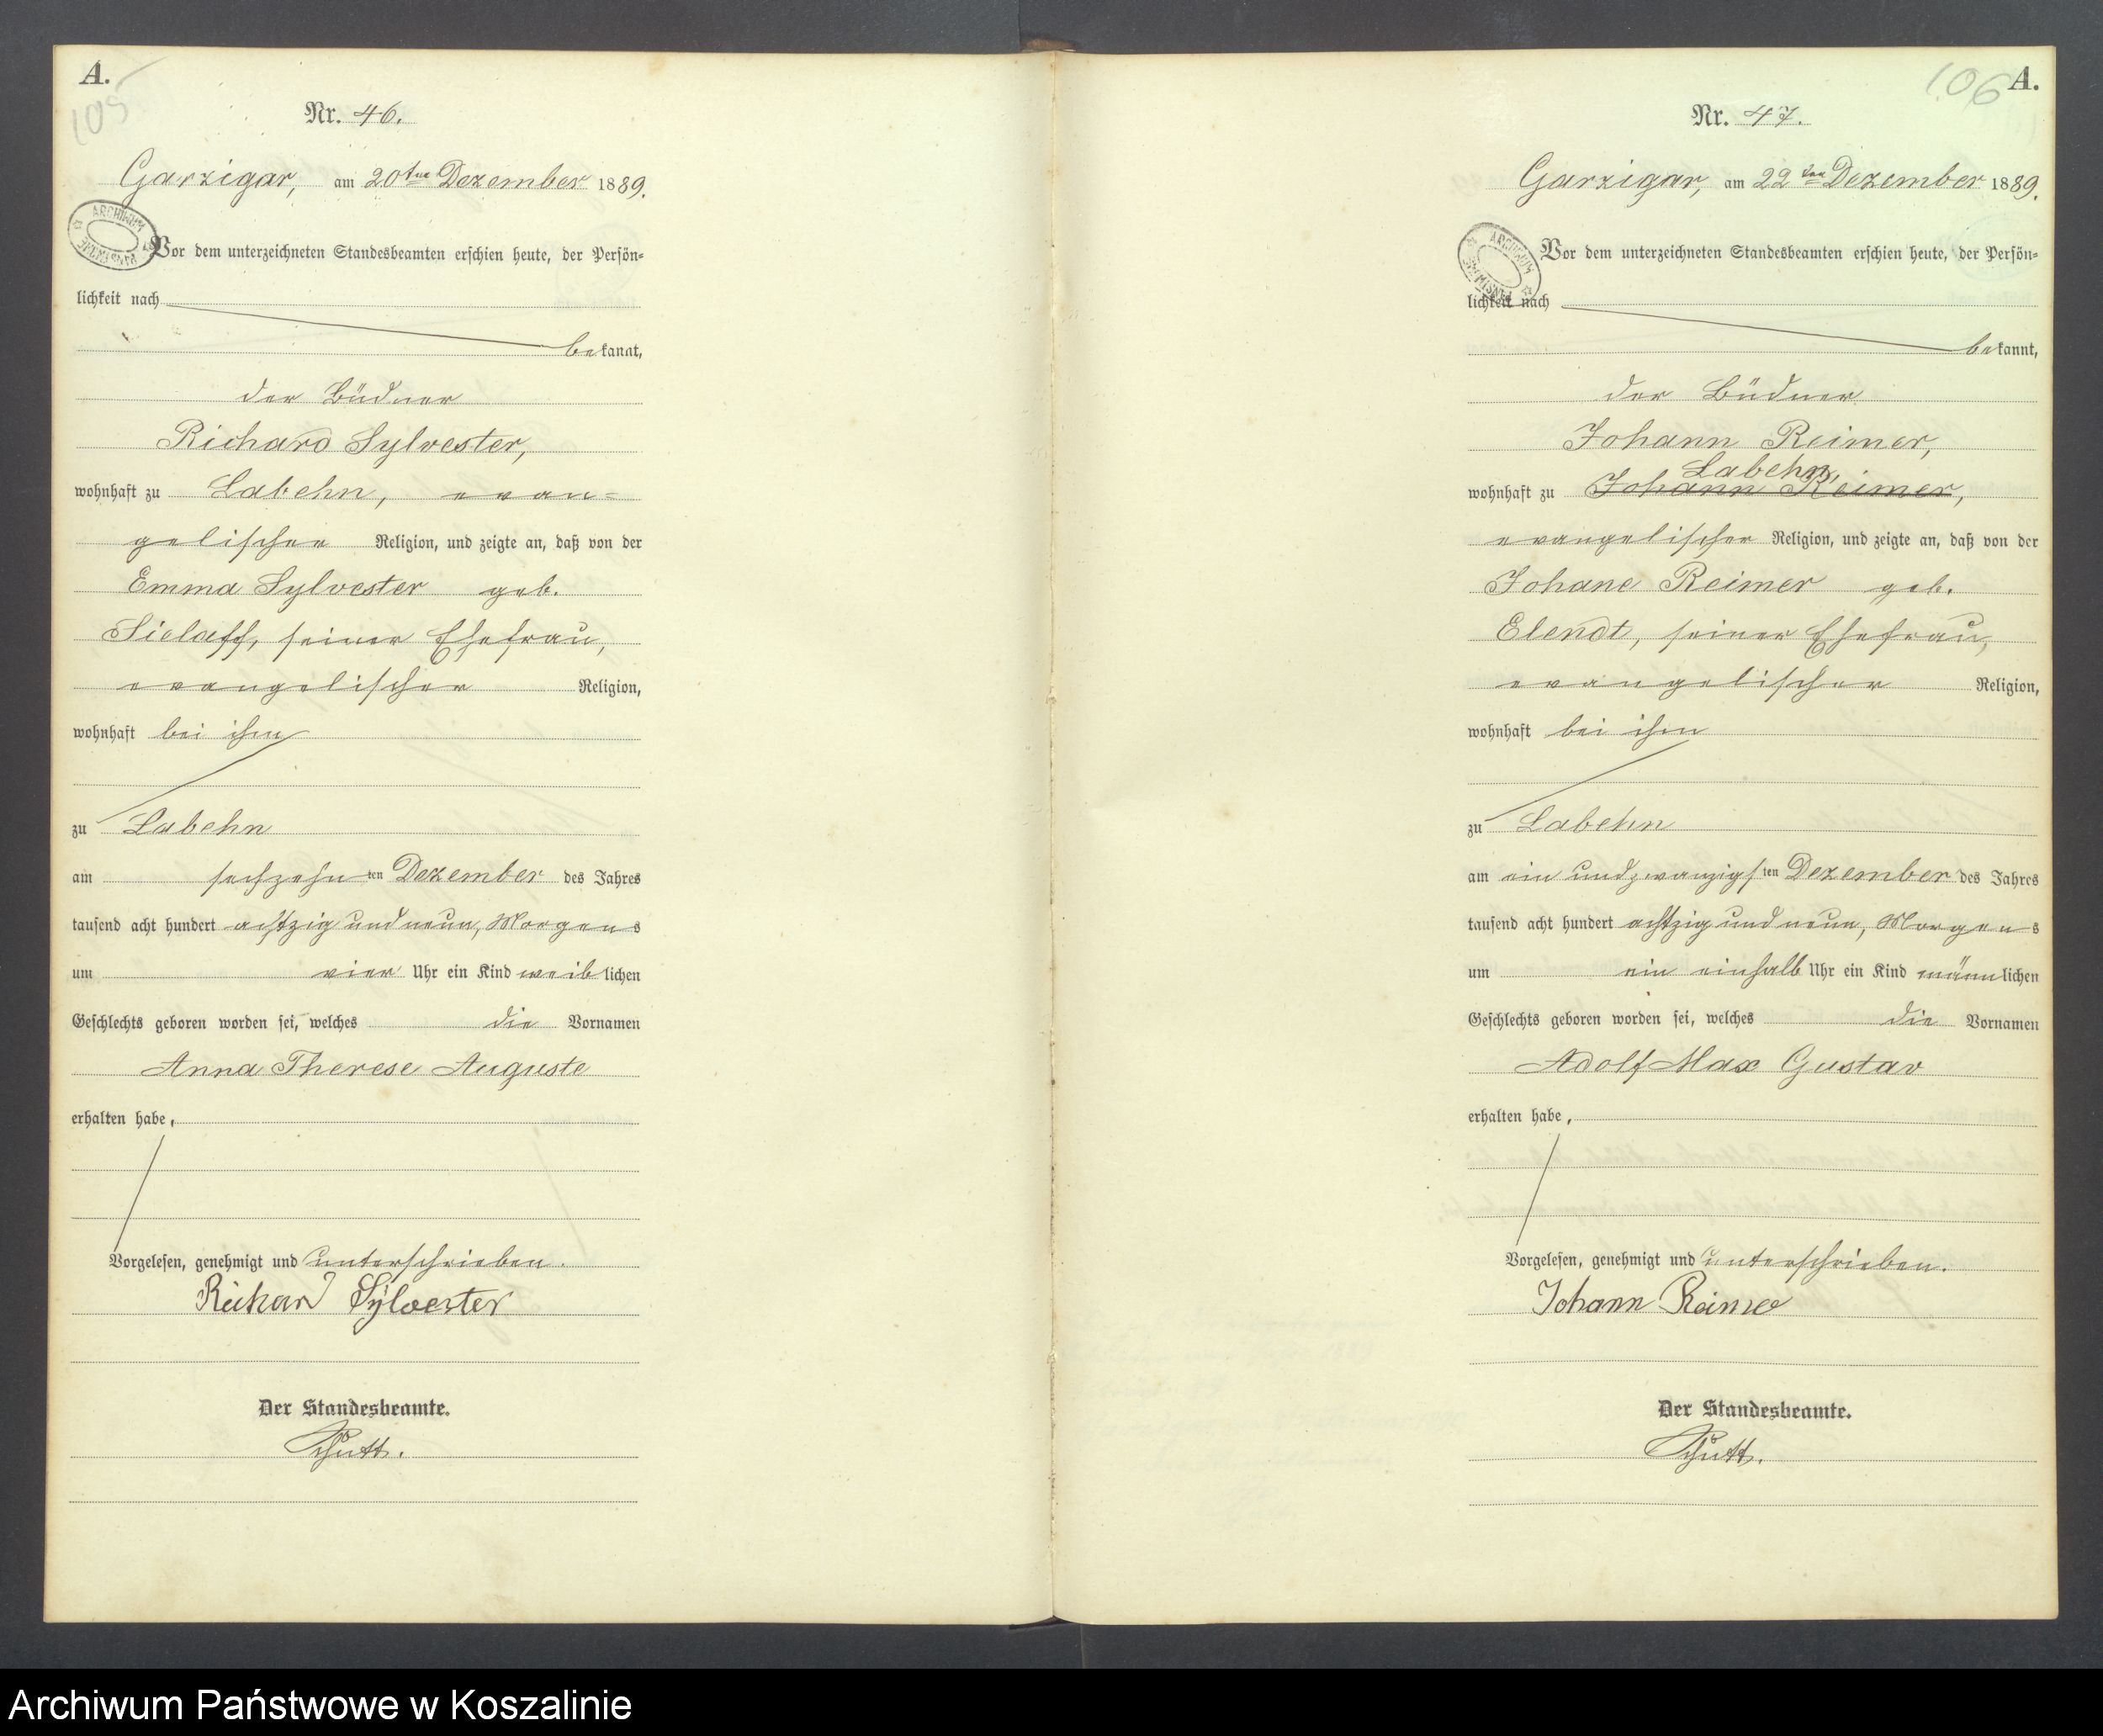 A.
105
Nr. 46.
Garzigar, am 20ten Dezember 1889.
ARCHIWUM PAŃSTWOWE
Vor dem unterzeichneten Standesbeamten erschien heute, der Persön=
lichkeit nach
bekannt,
der Büdner
Richard Sylvester,
wohnhaft zu Labehn, evan=
gelischer Religion, und zeigte an, daß von der
Emma Sylvester geb.
Sielaff, seiner Ehefrau,
evangelischer Religion,
wohnhaft bei ihm
zu Labehn
am sechzehnten Dezember des Jahres
tausend acht hundert achtzig und neun, Morgens
um vier Uhr ein Kind weiblichen
Geschlechts geboren worden sei, welches die Vornamen
Anna Therese Auguste
erhalten habe,
Vorgelesen, genehmigt und unterschrieben.
Richard Sylvester
Der Standesbeamte.
Schutt.
106
A.
Nr. 47.
Garzigar, am 22ten Dezember 1889.
ARCHIWUM PAŃSTWOWE
Vor dem unterzeichneten Standesbeamten erschien heute, der Persön=
lichkeit nach
bekannt,
der Büdner
Johann Reimer,
Labehn,
wohnhaft zu Johann Reimer,
evangelischer Religion, und zeigte an, daß von der
Johane Reimer geb.
Elendt, seiner Ehefrau,
evangelischer Religion,
wohnhaft bei ihm
zu Labehn
am ein und zwanzigsten Dezember des Jahres
tausend acht hundert achtzig und neun, Morgens
um ein einhalb Uhr ein Kind männlichen
Geschlechts geboren worden sei, welches die Vornamen
Adolf Max Gustav
erhalten habe,
Vorgelesen, genehmigt und unterschrieben.
Johann Reimer
Der Standesbeamte.
Schutt.
Archiwum Państwowe w Koszalinie